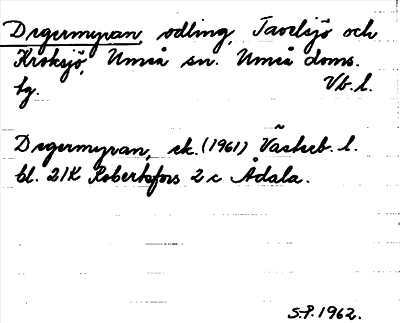 Degermyran, odling, Tavelsjö och
Kroksjö, Umeå sn. Umeå doms.
hg. Vb. l.
Degermyran, ek. (1961) Västerb. l.
bl. 21K Robertsfors 2 c Ådala.
S.P. 1962.